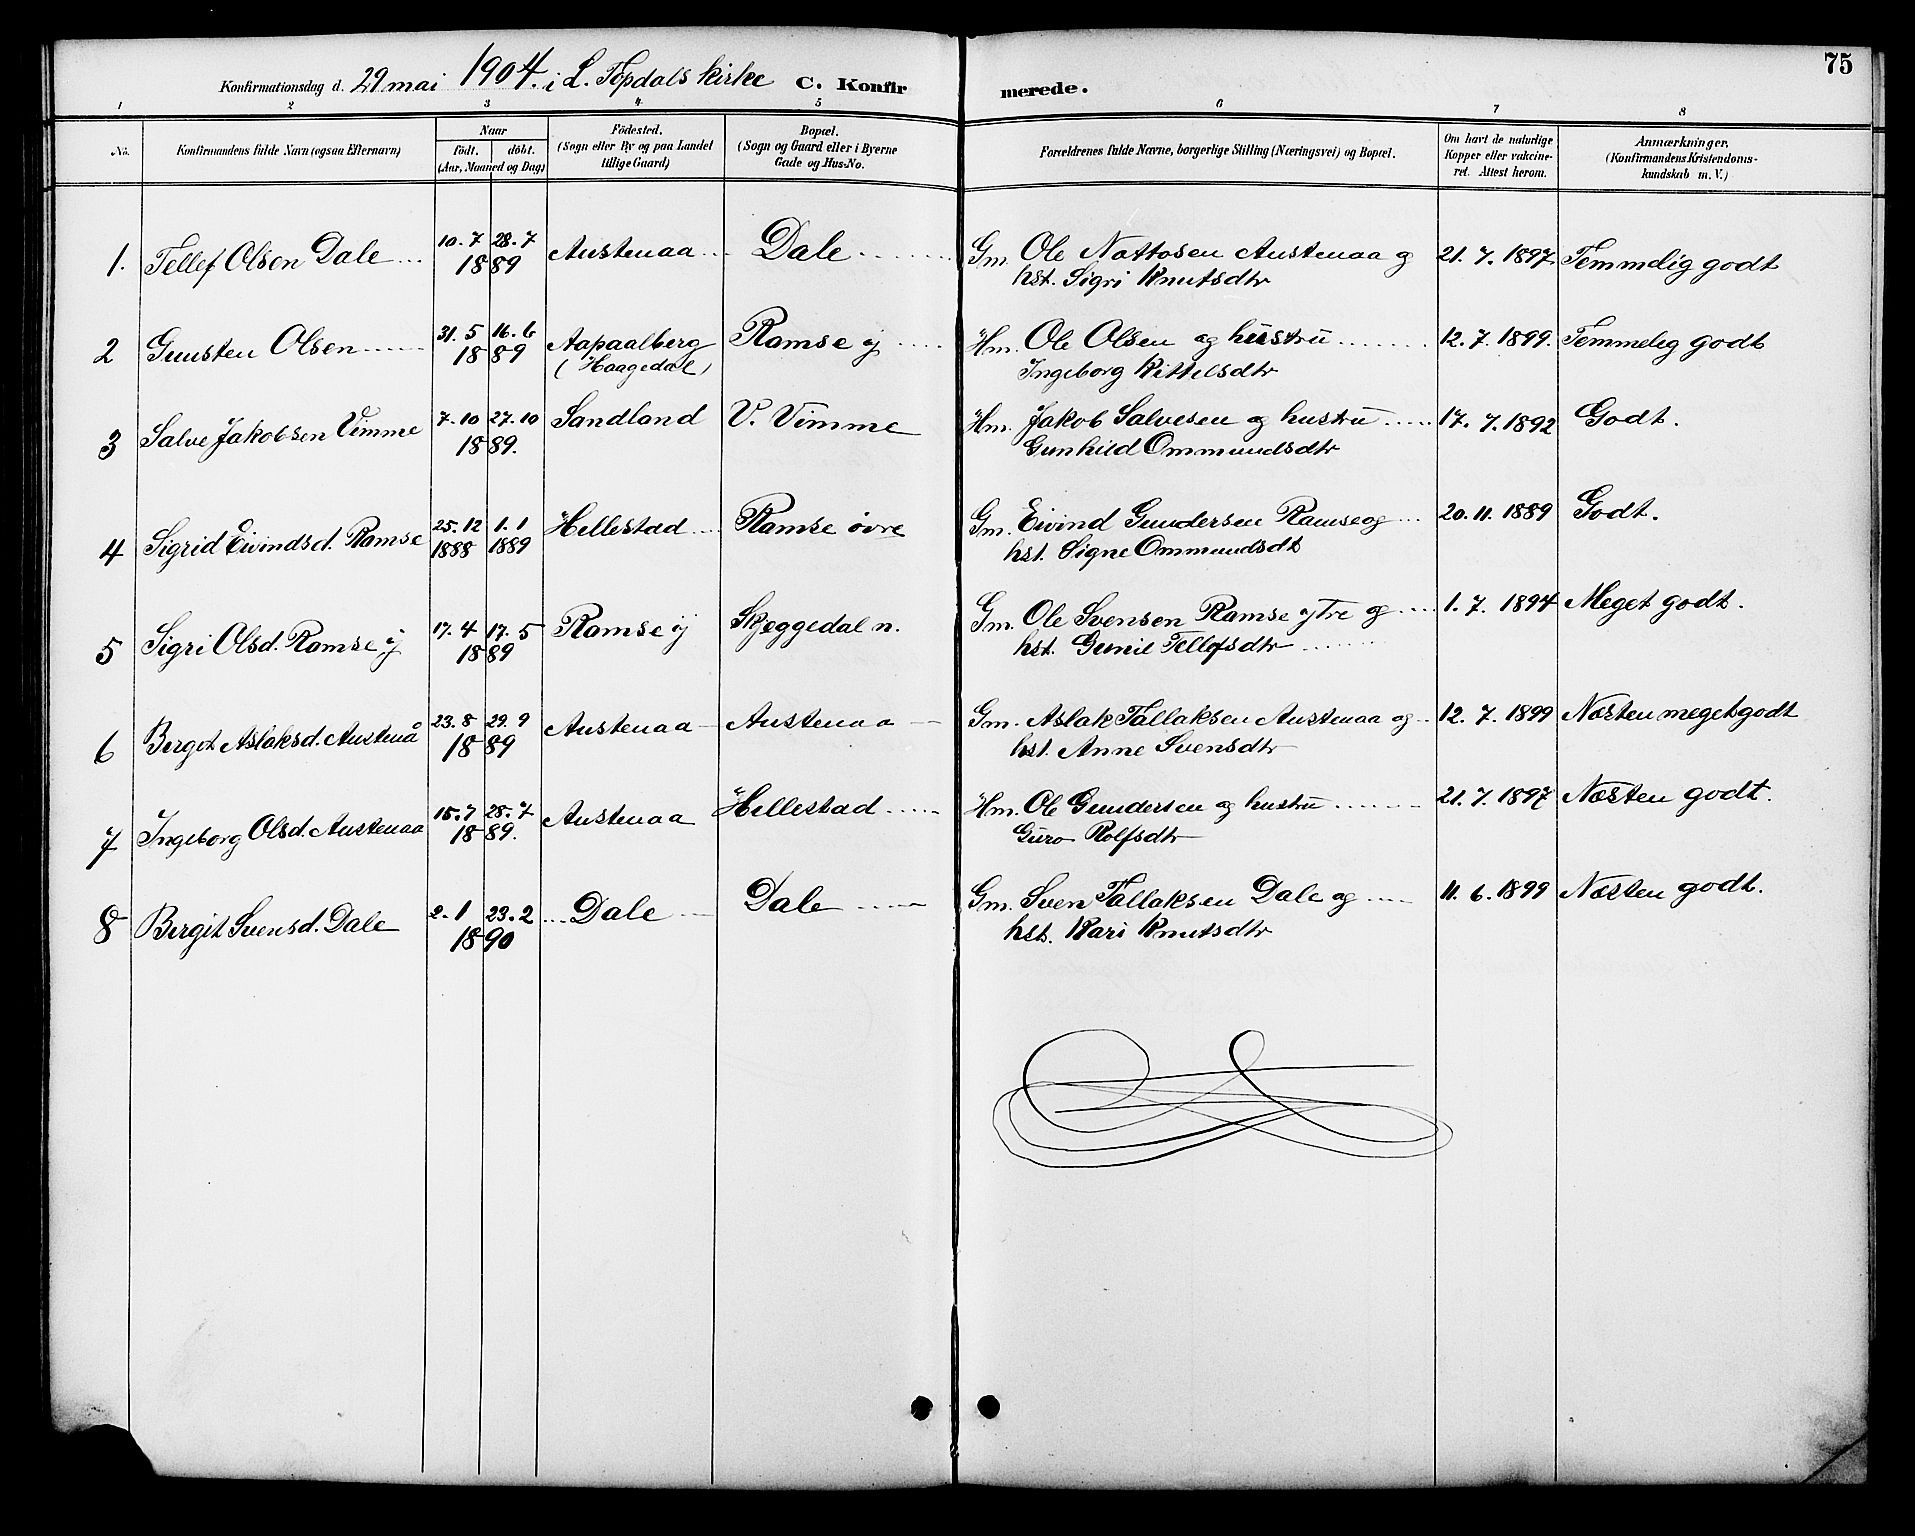 75
Konfirmationsdag d. 29 mai 1904. i L. Topdals kirke C. Konfirmerede.
1 2 3 4 5 6 7 8
No. Konfirmandens fulde Navn (ogsaa Efternavn) Naar født. døbt. (Aar, Maaned og Dag) Födested. (Sogn eller By og paa Landet tillige Gaard) Bopæl. (Sogn og Gaard eller i Byerne Gade og Hus-No. Forældrenes fulde Navne, borgerlige Stilling (Næringsvei) og Bopæl. Om havt de naturlige Kopper eller vakcineret. Attest herom. Anmærkninger. (Konfirmandens Kristendomskundskab m. V.)
1. Tellef Olsen Dale 10.7 28.7 1889 Austenaa Dale Gm. Ole Nottosen Austenaa og 21. 7. 1897 Temmelig godt
hst. Sigri Knutsdtr
2 Gunsten Olsen 31.5 16.6 1889 Aapaalberg (Haagedal) Ramse y Hm. Ole Olsen og hustru 12. 7. 1899. Temmelig godt
Ingeborg Kittelsdtr
3 Salve Jakobsen Vimme 7.10 27.10 1889. Sandland V. Vimme Hm. Jakob Salvesen og hustru 17. 7. 1892 Godt.
Gunhild Ommundsdtr
4 Sigrid Eivindsd. Ramse 25.12 1888 1.1 1889 Hellestad Ramse øvre Gm. Eivind Gundersen Ramse og 20. 11. 1889 Godt.
hst. Signe Ommundsdt
5 Sigri Olsd. Ramse y 17.4 17.5 1889 Ramse y Skjeggedal n. Gm. Ole Svensen Ramse ytre og 1. 7. 1894 Meget godt.
hst. Gunil Tellefsdtr
6 Bergit Aslaksd. Austenå 23.8 29.9 1889 Austenaa Austenaa Gm. Aslak Tallaksen Austenaa og 12. 7. 1899 Næsten meget godt
hst. Anne Svensdtr
7 Ingeborg Olsd. Austenaa 15.7 28.7 1889. Austenaa Hellestad Hm. Ole Gundersen og hustru 21. 7. 1897 Næsten godt.
Guro Rolfsdtr
8 Bergit Svensd. Dale 2.1 23.2 1890 Dale Dale Gm. Sven Tallaksen Dale og 11. 6. 1899 Næsten godt.
hst. Kari Knutsdtr